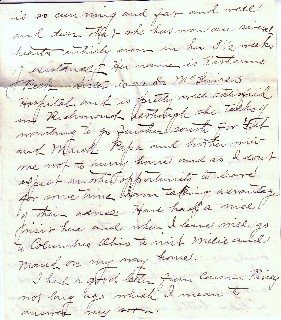 is so cunning and fat and well
and dear that she has won our
hearts entirely even in her 1½ weeks
Her name is Katherine
is in Dr. McGuire's
Hospital and is pretty well
in Richmond although she talks of
wanting to go further south for Feb
and March. Papa and mother
me not to hurry home and as I don't
expect another opportunity to leave
for some time I am taking advantage
of their advice. Have had a nice
visit here and when I leave will go
to Columbus Ohio to visit and
Maud on my way home.
I had a good letter from Cousin
not long ago which I mean to
answer very soon.